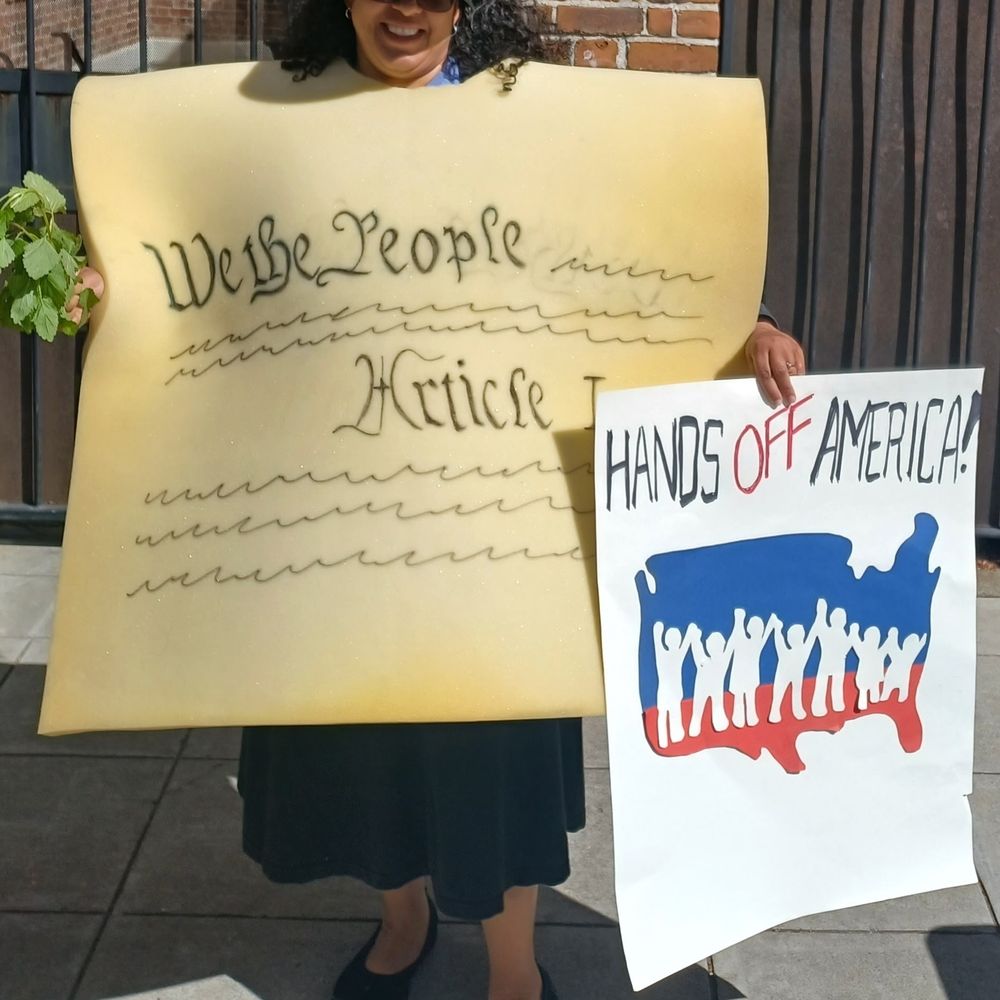 We the People
Article I
HANDS OFF AMERICA!